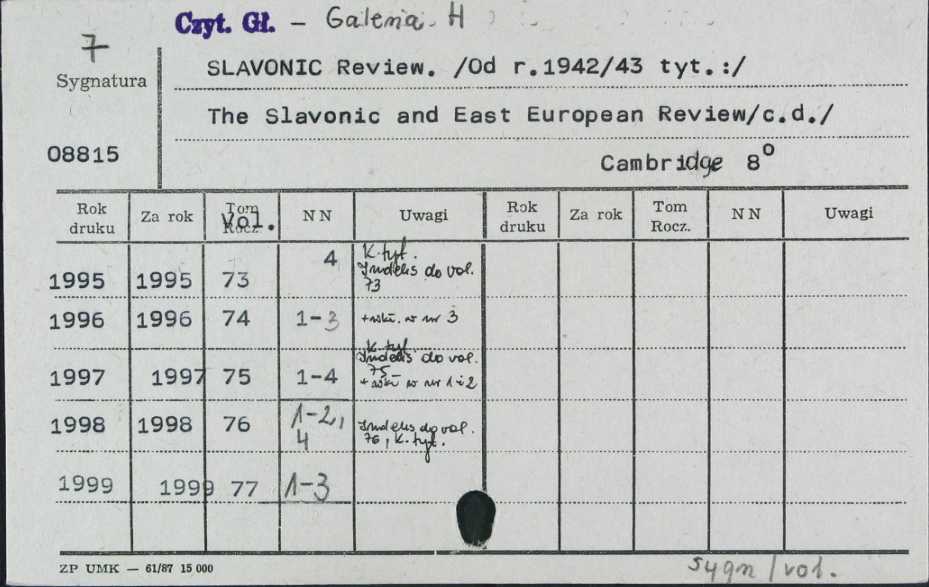 Czyt. Gł. – Galeria H
7
Sygnatura
08815
SLAVONIC Review. /Od r.1942/43 tyt.:/
The Slavonic and East European Review/c.d./
Cambridge 8°
Rok druku | Za rok | Tom Rocz. Vol. | NN | Uwagi | Rok druku | Za rok | Tom Rocz. | NN | Uwagi
1995 | 1995 | 73 | 4 | K. tyt. Indeks do vol. 73
1996 | 1996 | 74 | 1-3 | w nr 3
1997 | 1997 | 75 | 1-4 | K. tyt. Indeks do vol. 75 w nr 1 i 2
1998 | 1998 | 76 | 1-2, 4 | Indeks do vol. 76, K. tyt.
1999 | 1999 | 77 | 1-3
ZP UMK — 61/87 15 000
sygn/vol.